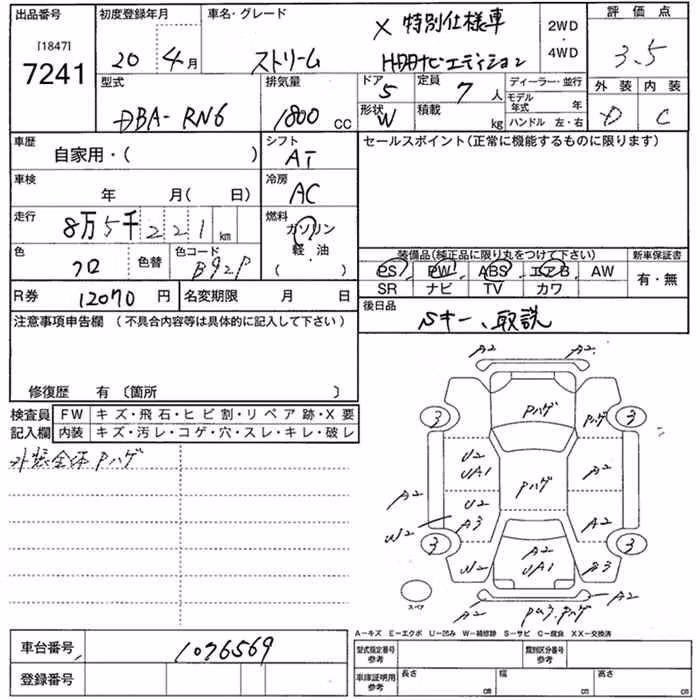 出品番号 初度登録年月 車名・グレード 評価点
[1847]
7241
20 4月
ストリーム
X 特別仕様車
HDDナビエディション
2WD
・
4WD
3.5
外装 内装
D C
型式
DBA-RN6
排気量
1800 CC
ドア 5
形状 W
定員 7人
積載 kg
ディーラー・並行
モデル年式 年
ハンドル 左・右
車歴
自家用・( )
シフト
AT
セールスポイント(正常に機能するものに限ります)
車検
年 月( 日)
冷房
AC
走行
8万5千221km
燃料
ガソリン
・
軽油
( )
色
クロ
色替
色コード
B92P
装備品(純正品に限り丸をつけて下さい) 新車保証書
PS PW ABS エアB AW
SR ナビ TV カワ
有・無
R券 12070円 名変期限 月 日
後日品
Sキー、取説
注意事項申告欄 (不具合内容等は具体的に記入して下さい)
修復歴 有 〔箇所 〕
検査員 FW キズ・飛石・ヒビ割・リペア跡・X要
記入欄 内装 キズ・汚レ・コゲ・穴・スレ・キレ・破レ
外装全体Pハゲ
A2 A2
Pハゲ Pハゲ
3 3
U2
UA1
A2
Pハゲ
A2 U2 A2
W2 A3 A2
3 3
W2
A2
UA1
A3
スペア
A2 Pハゲ A2
A-キズ E-エクボ U-凹み W-補修跡 S-サビ C-腐食 XX-交換済
車台番号 1036569
登録番号
型式指定番号 参考
類別区分番号 参考
車庫証明用 参考
長さ cm 幅 cm 高さ cm